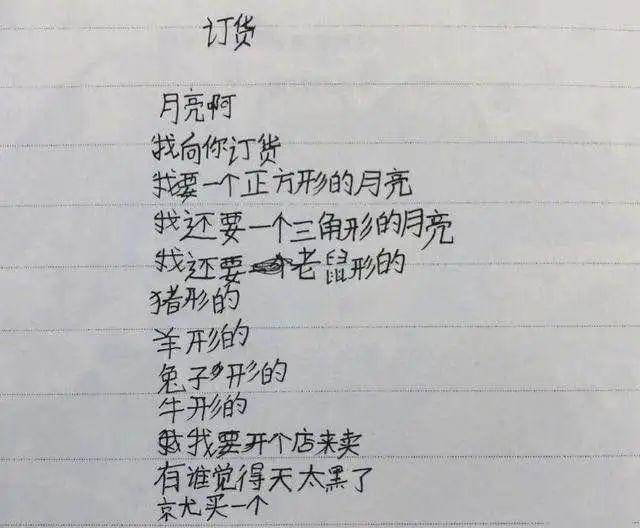 订货
月亮啊
我向你订货
我要一个正方形的月亮
我还要一个三角形的月亮
我还要老鼠形的
猪形的
羊形的
兔子形的
牛形的
我要开个店来卖
有谁觉得天太黑了
京尤买一个